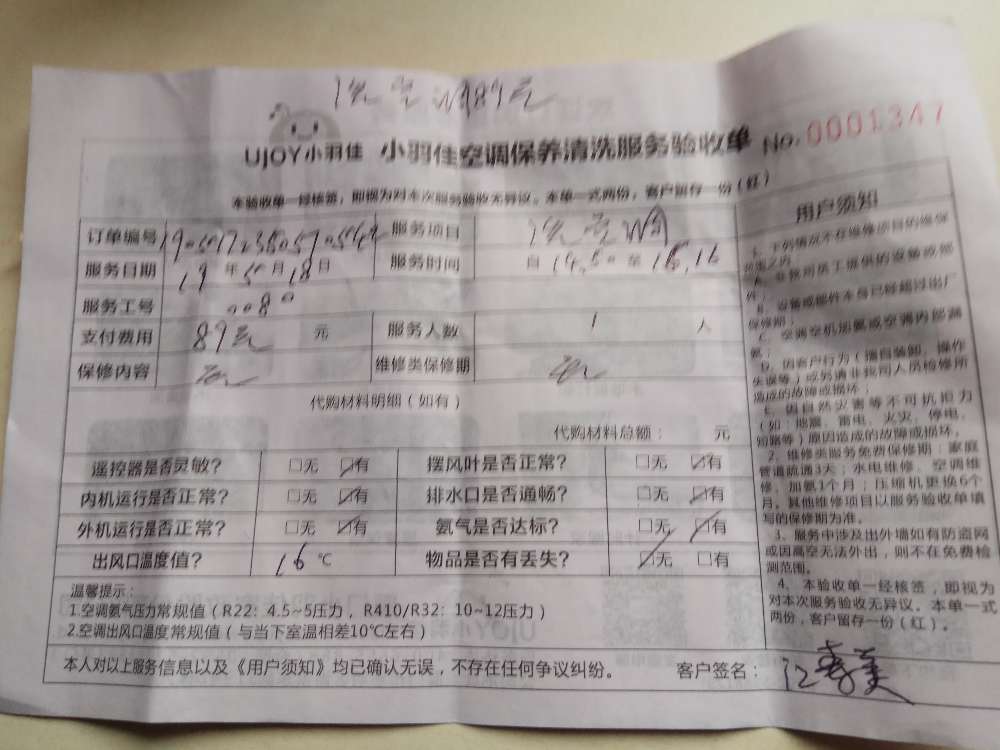 洗空调89元
UJOY小羽佳 小羽佳空调保养清洗服务验收单 No. 0001347
本验收单一经核签,即视为对本次服务验收无异议。本单一式两份,客户留存一份(红)
订单编号 服务项目 洗空调
服务日期 19年5月18日 服务时间 自 14.50 至 16.16
服务工号 0080
支付费用 89元 元 服务人数 1 人
保修内容 无 维修类保修期 无
代购材料明细(如有)
代购材料总额: 元
遥控器是否灵敏? □无 ☑有 摆风叶是否正常? □无 ☑有
内机运行是否正常? □无 ☑有 排水口是否通畅? □无 ☑有
外机运行是否正常? □无 ☑有 氨气是否达标? □无 ☑有
出风口温度值? 16 ℃ 物品是否有丢失? ☑无 □有
温馨提示:
1.空调氨气压力常规值(R22:4.5~5压力,R410/R32:10~12压力)
2.空调出风口温度常规值(与当下室温相差10℃左右)
本人对以上服务信息以及《用户须知》均已确认无误,不存在任何争议纠纷。 客户签名:
用户须知
1、下列情况不在维修项目的维保
范围之内
A、非我司员工提供的安装或部
件;
B、设备或部件本身已经超过出厂
保修期;
C、空调空机加氨或空调内部漏
氨;
D、因客户行为(擅自装卸、操作
失误等)或另请非我司人员检修所
造成的故障或损坏;
E、因自然灾害等不可抗拒力
(如:地震、雷电、火灾、停电、
短路等)原因造成的故障或损坏。
2、维修类服务免费保修期:家庭
管道疏通3天;水电维修、空调维
修、加氨1个月;压缩机更换6个
月。其他维修项目以服务验收单填
写的保修期为准。
3、服务中涉及出外墙如有防盗网
或因高空无法外出,则不在免费检
测范围。
4、本验收单一经核签,即视为
对本次服务验收无异议。本单一式
两份,客户留存一份(红)。